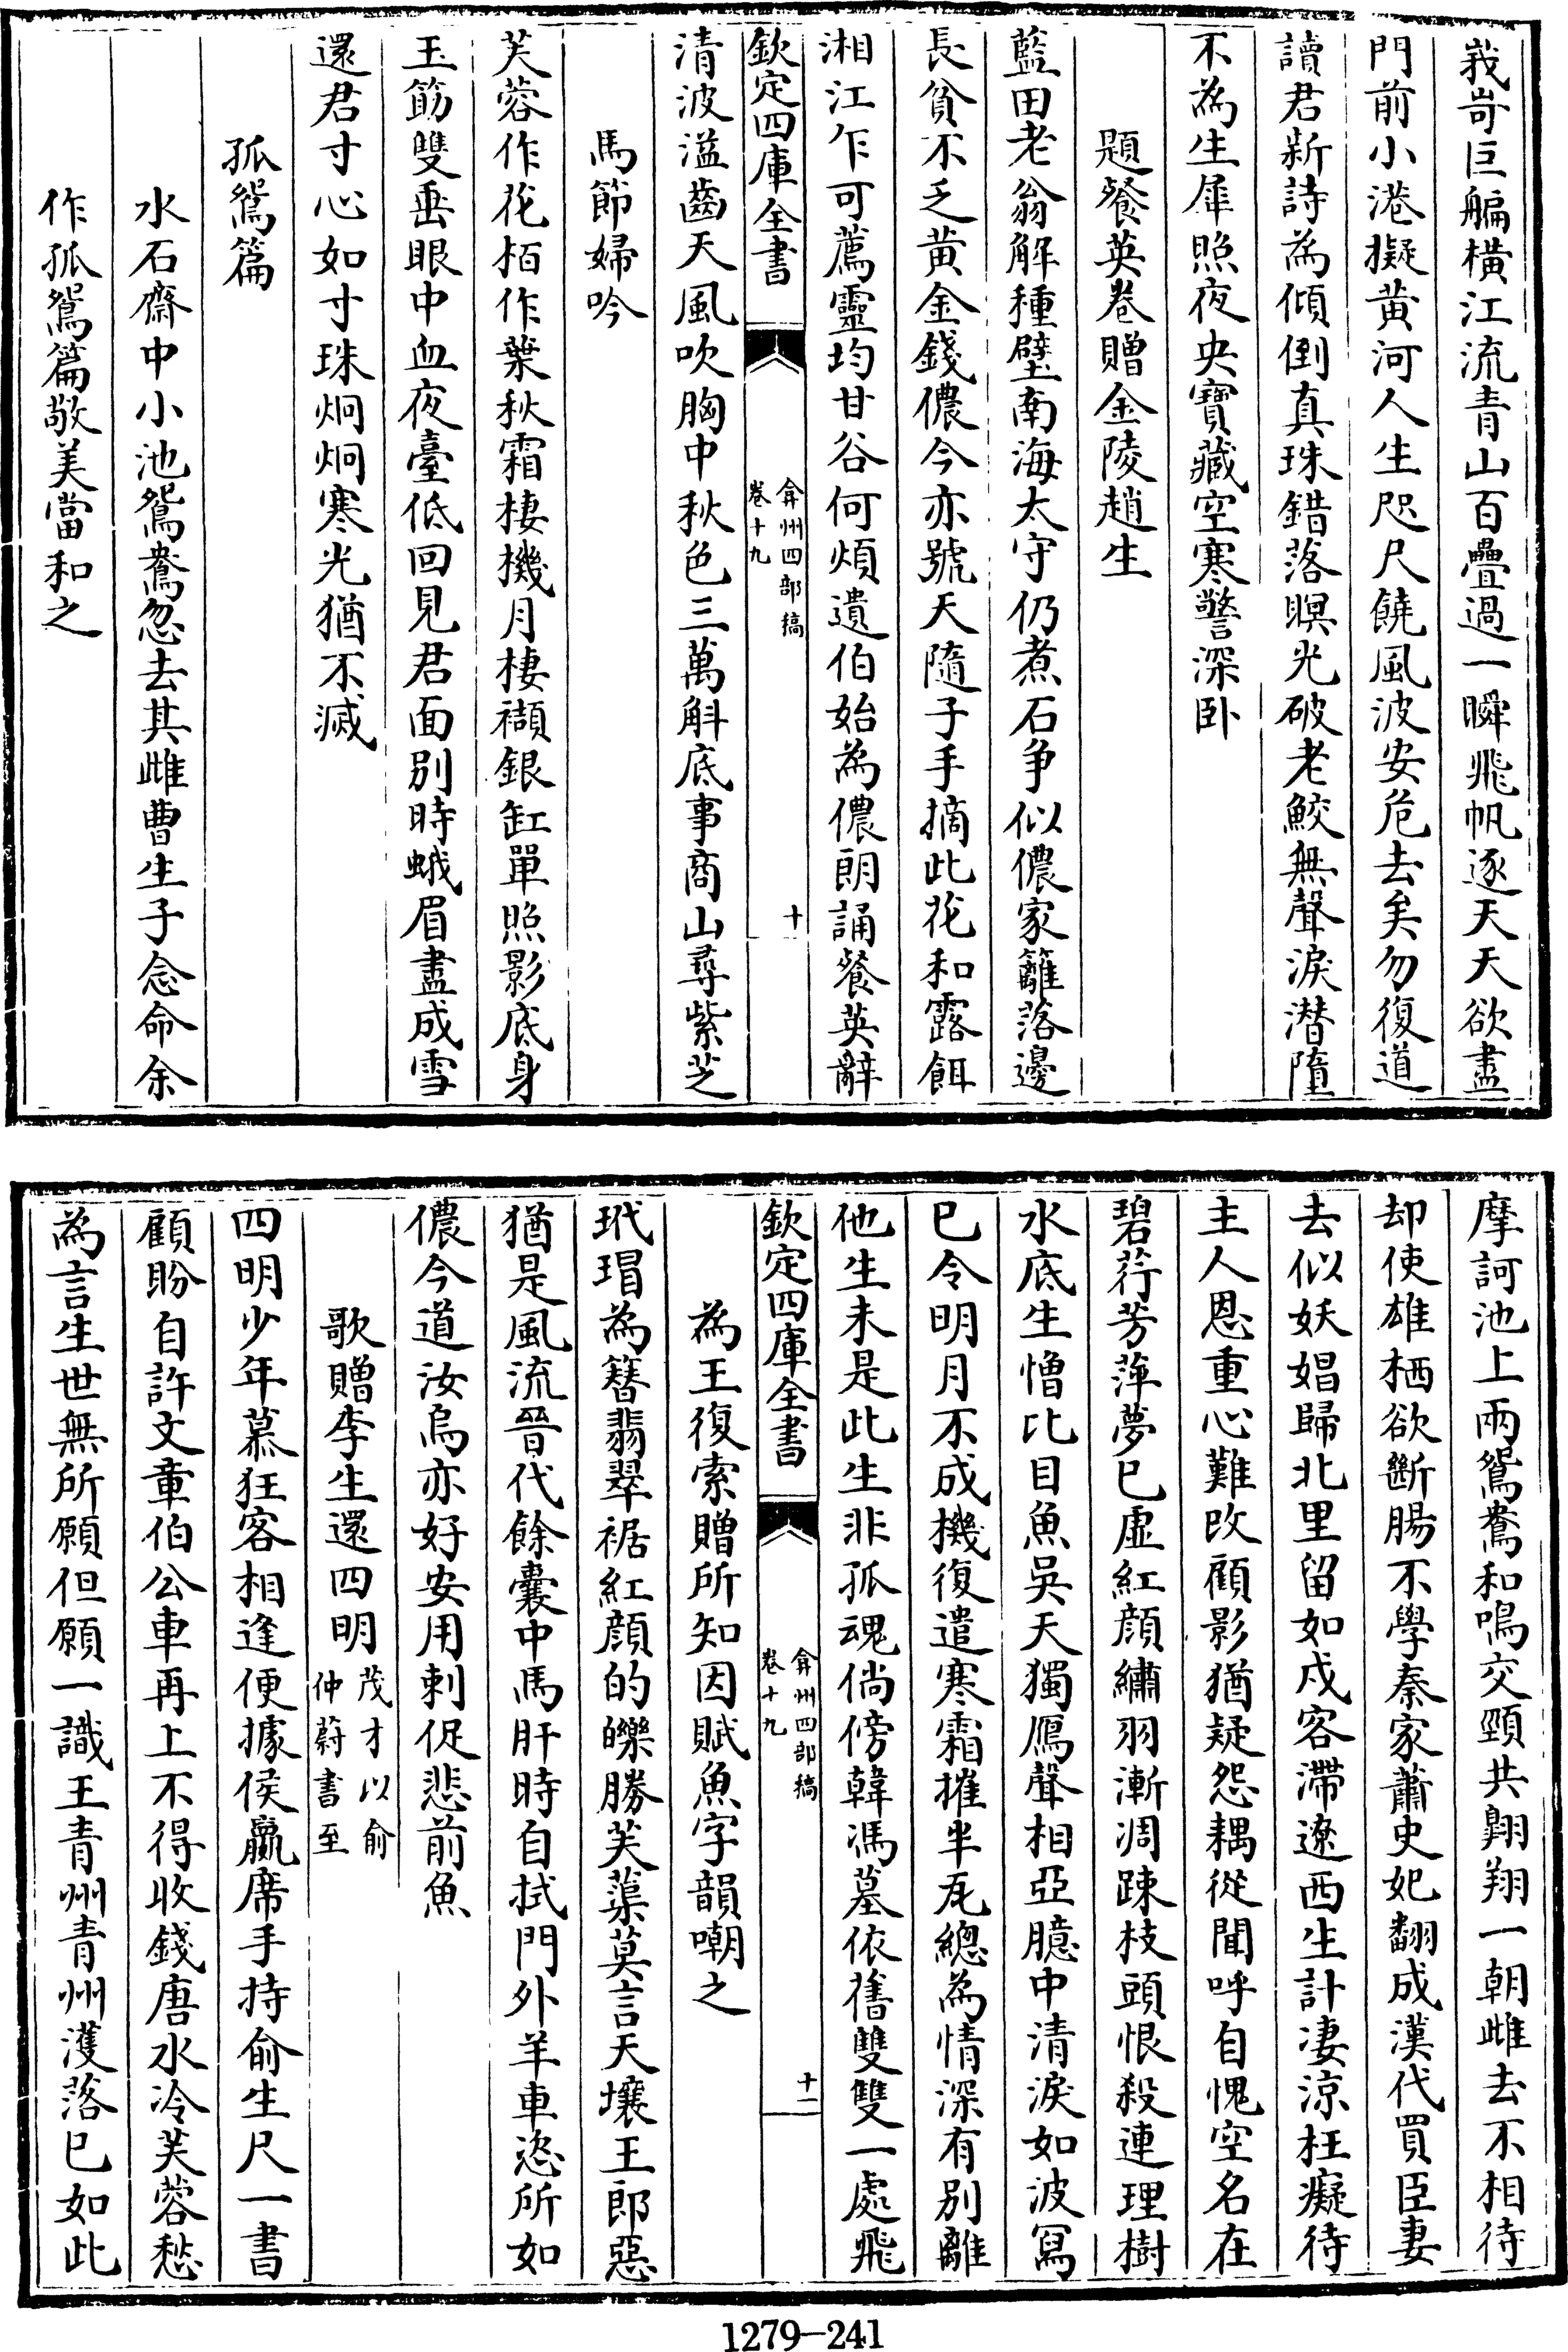 峩岢巨艑橫江流青山百疊過一瞬飛帆逐天天欲盡
門前小港擬黄河人生咫尺饒風波安危去矣勿復道
讀君新詩為傾倒真珠錯落暝光破老鮫無聲淚潜墮
不為生犀照夜央寶藏空寒警深卧
題餐英卷贈金陵趙生
藍田老翁解種璧南海太守仍煮石争似儂家籬落邊
長貧不乏黄金錢儂今亦號天隨子手摘此花和露餌
湘江乍可薦靈均甘谷何煩遺伯始為儂朗誦餐英辭
欽定四庫全書
弇州四部稿
卷十九
十
清波溢齒天風吹胸中秋色三萬斛底事商山尋紫芝
馬節婦吟
芙蓉作花栢作葉秋霜棲機月棲襭銀缸單照影底身
玉筯雙垂眼中血夜臺低回見君面别時蛾眉盡成雪
還君寸心如寸珠炯炯寒光猶不滅
孤鴛篇
水石齋中小池鴛鴦忽去其雌曹生子念命余
作孤鴛篇敬美當和之
摩訶池上兩鴛鴦和鳴交頸共翺翔一朝雌去不相待
却使雄栖欲斷腸不學秦家蕭史妃翻成漢代買臣妻
去似妖娼歸北里留如戍客滯遼西生計凄凉枉癡待
主人恩重心難改顧影猶疑怨耦從聞呼自愧空名在
碧荇芳萍夢已虛紅顔繡羽漸凋踈枝頭恨殺連理樹
水底生憎比目魚吳天獨鴈聲相亞臆中清淚如波寫
已令明月不成機復遣寒霜摧半瓦總為情深有别離
他生未是此生非孤魂倘傍韓馮墓依舊雙雙一處飛
欽定四庫全書
弇州四部稿
卷十九
十一
為王復索贈所知因賦魚字韻嘲之
玳瑁為簪翡翠裾紅顔的皪勝芙蕖莫言天壤王郎惡
猶是風流晉代餘囊中馬肝時自拭門外羊車恣所如
儂今道汝烏亦好安用刺促悲前魚
歌贈李生還四明茂才以俞
仲蔚書至
四明少年慕狂客相逢便據侯嬴席手持俞生尺一書
顧盼自許文章伯公車再上不得收錢唐水冷芙蓉愁
為言生世無所願但願一識王青州青州濩落已如此
1279-241